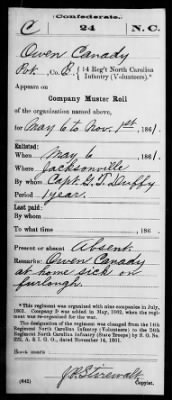 Confederate.
C 24 N.C.
Owen Canady
Pvt., Co. E, 14 Reg't North Carolina
Infantry (Volunteers).*
Appears on
Company Muster Roll
of the organization named above,
for May 6 to Nov. 1st, 1861.
Enlisted:
When May 6, 1861.
Where Jacksonville
By whom Capt. G. T. Duffy
Period 1 year.
Last paid:
By whom
To what time , 186 .
Present or absent Absent.
Remarks: Owen Canady
at home sick on
furlough.
*This regiment was organized with nine companies in July,
1861. Company D was added in May, 1862, when the regi-
ment was re-organized for the war.
The designation of the regiment was changed from the 14th
Regiment North Carolina Infantry (Volunteers) to the 24th
Regiment North Carolina Infantry (State Troops) by S. O. No.
222, A. & I. G. O., dated November 14, 1861.
Book mark:
(642) Copyist.